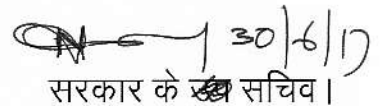 30/6/17
सरकार के सचिव।